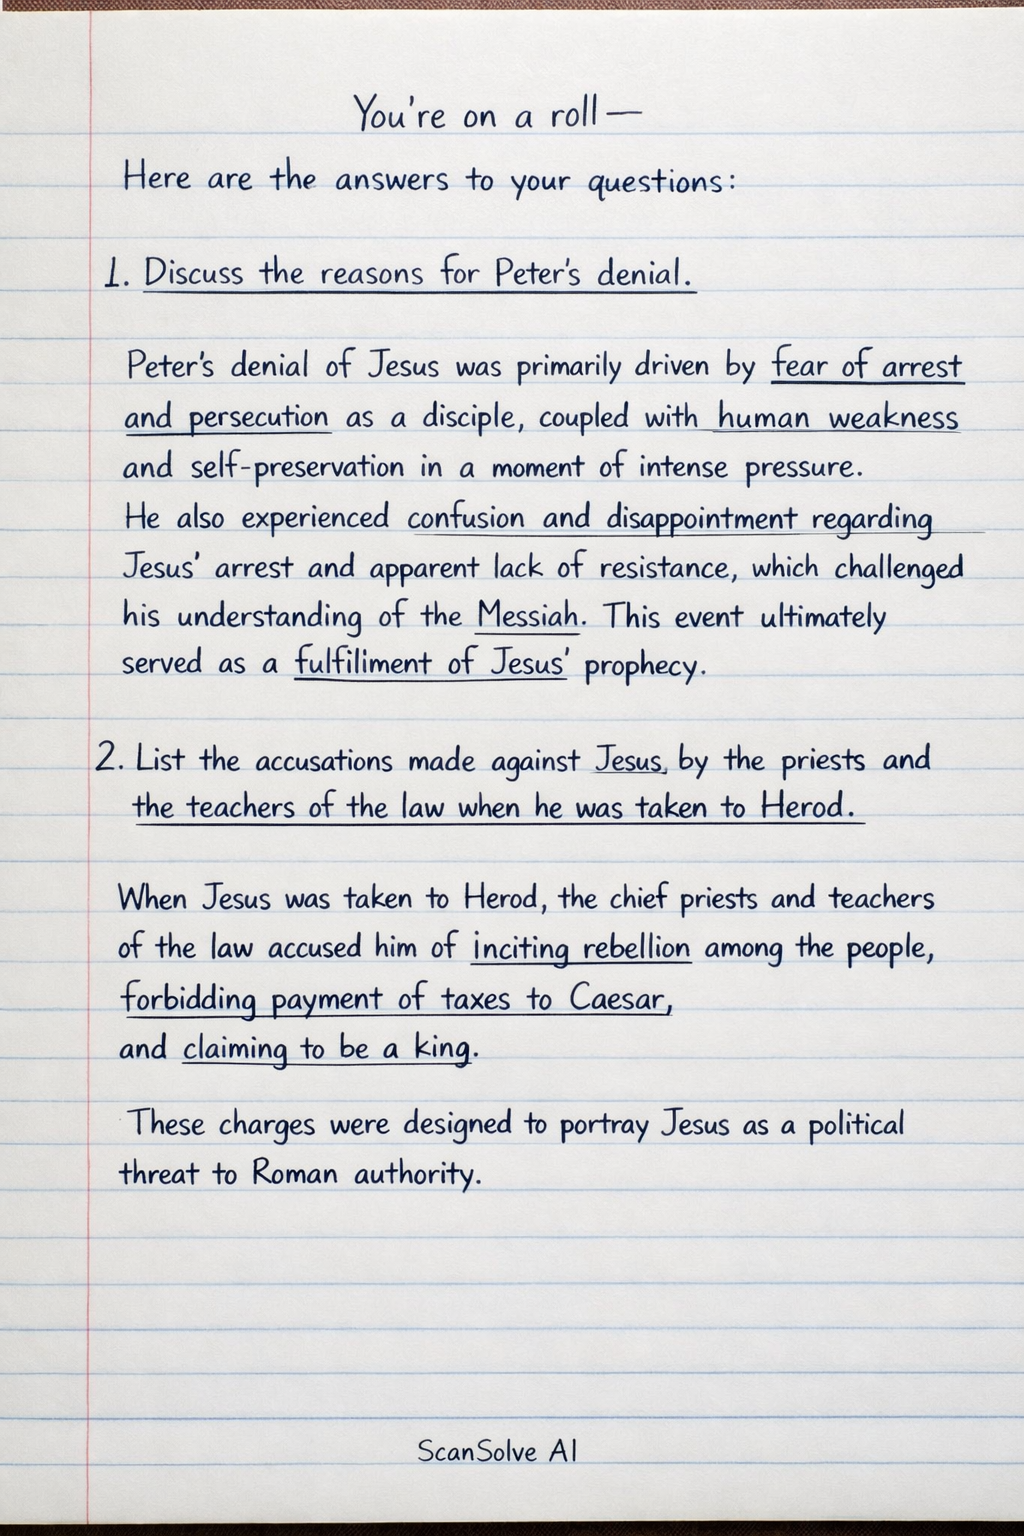 You're on a roll—
Here are the answers to your questions:
1. Discuss the reasons for Peter's denial.
Peter's denial of Jesus was primarily driven by fear of arrest
and persecution as a disciple, coupled with human weakness
and self-preservation in a moment of intense pressure.
He also experienced confusion and disappointment regarding
Jesus' arrest and apparent lack of resistance, which challenged
his understanding of the Messiah. This event ultimately
served as a fulfiliment of Jesus' prophecy.
2. List the accusations made against Jesus, by the priests and
the teachers of the law when he was taken to Herod.
When Jesus was taken to Herod, the chief priests and teachers
of the law accused him of inciting rebellion among the people,
forbidding payment of taxes to Caesar,
and claiming to be a king.
These charges were designed to portray Jesus as a political
threat to Roman authority.
ScanSolve AI